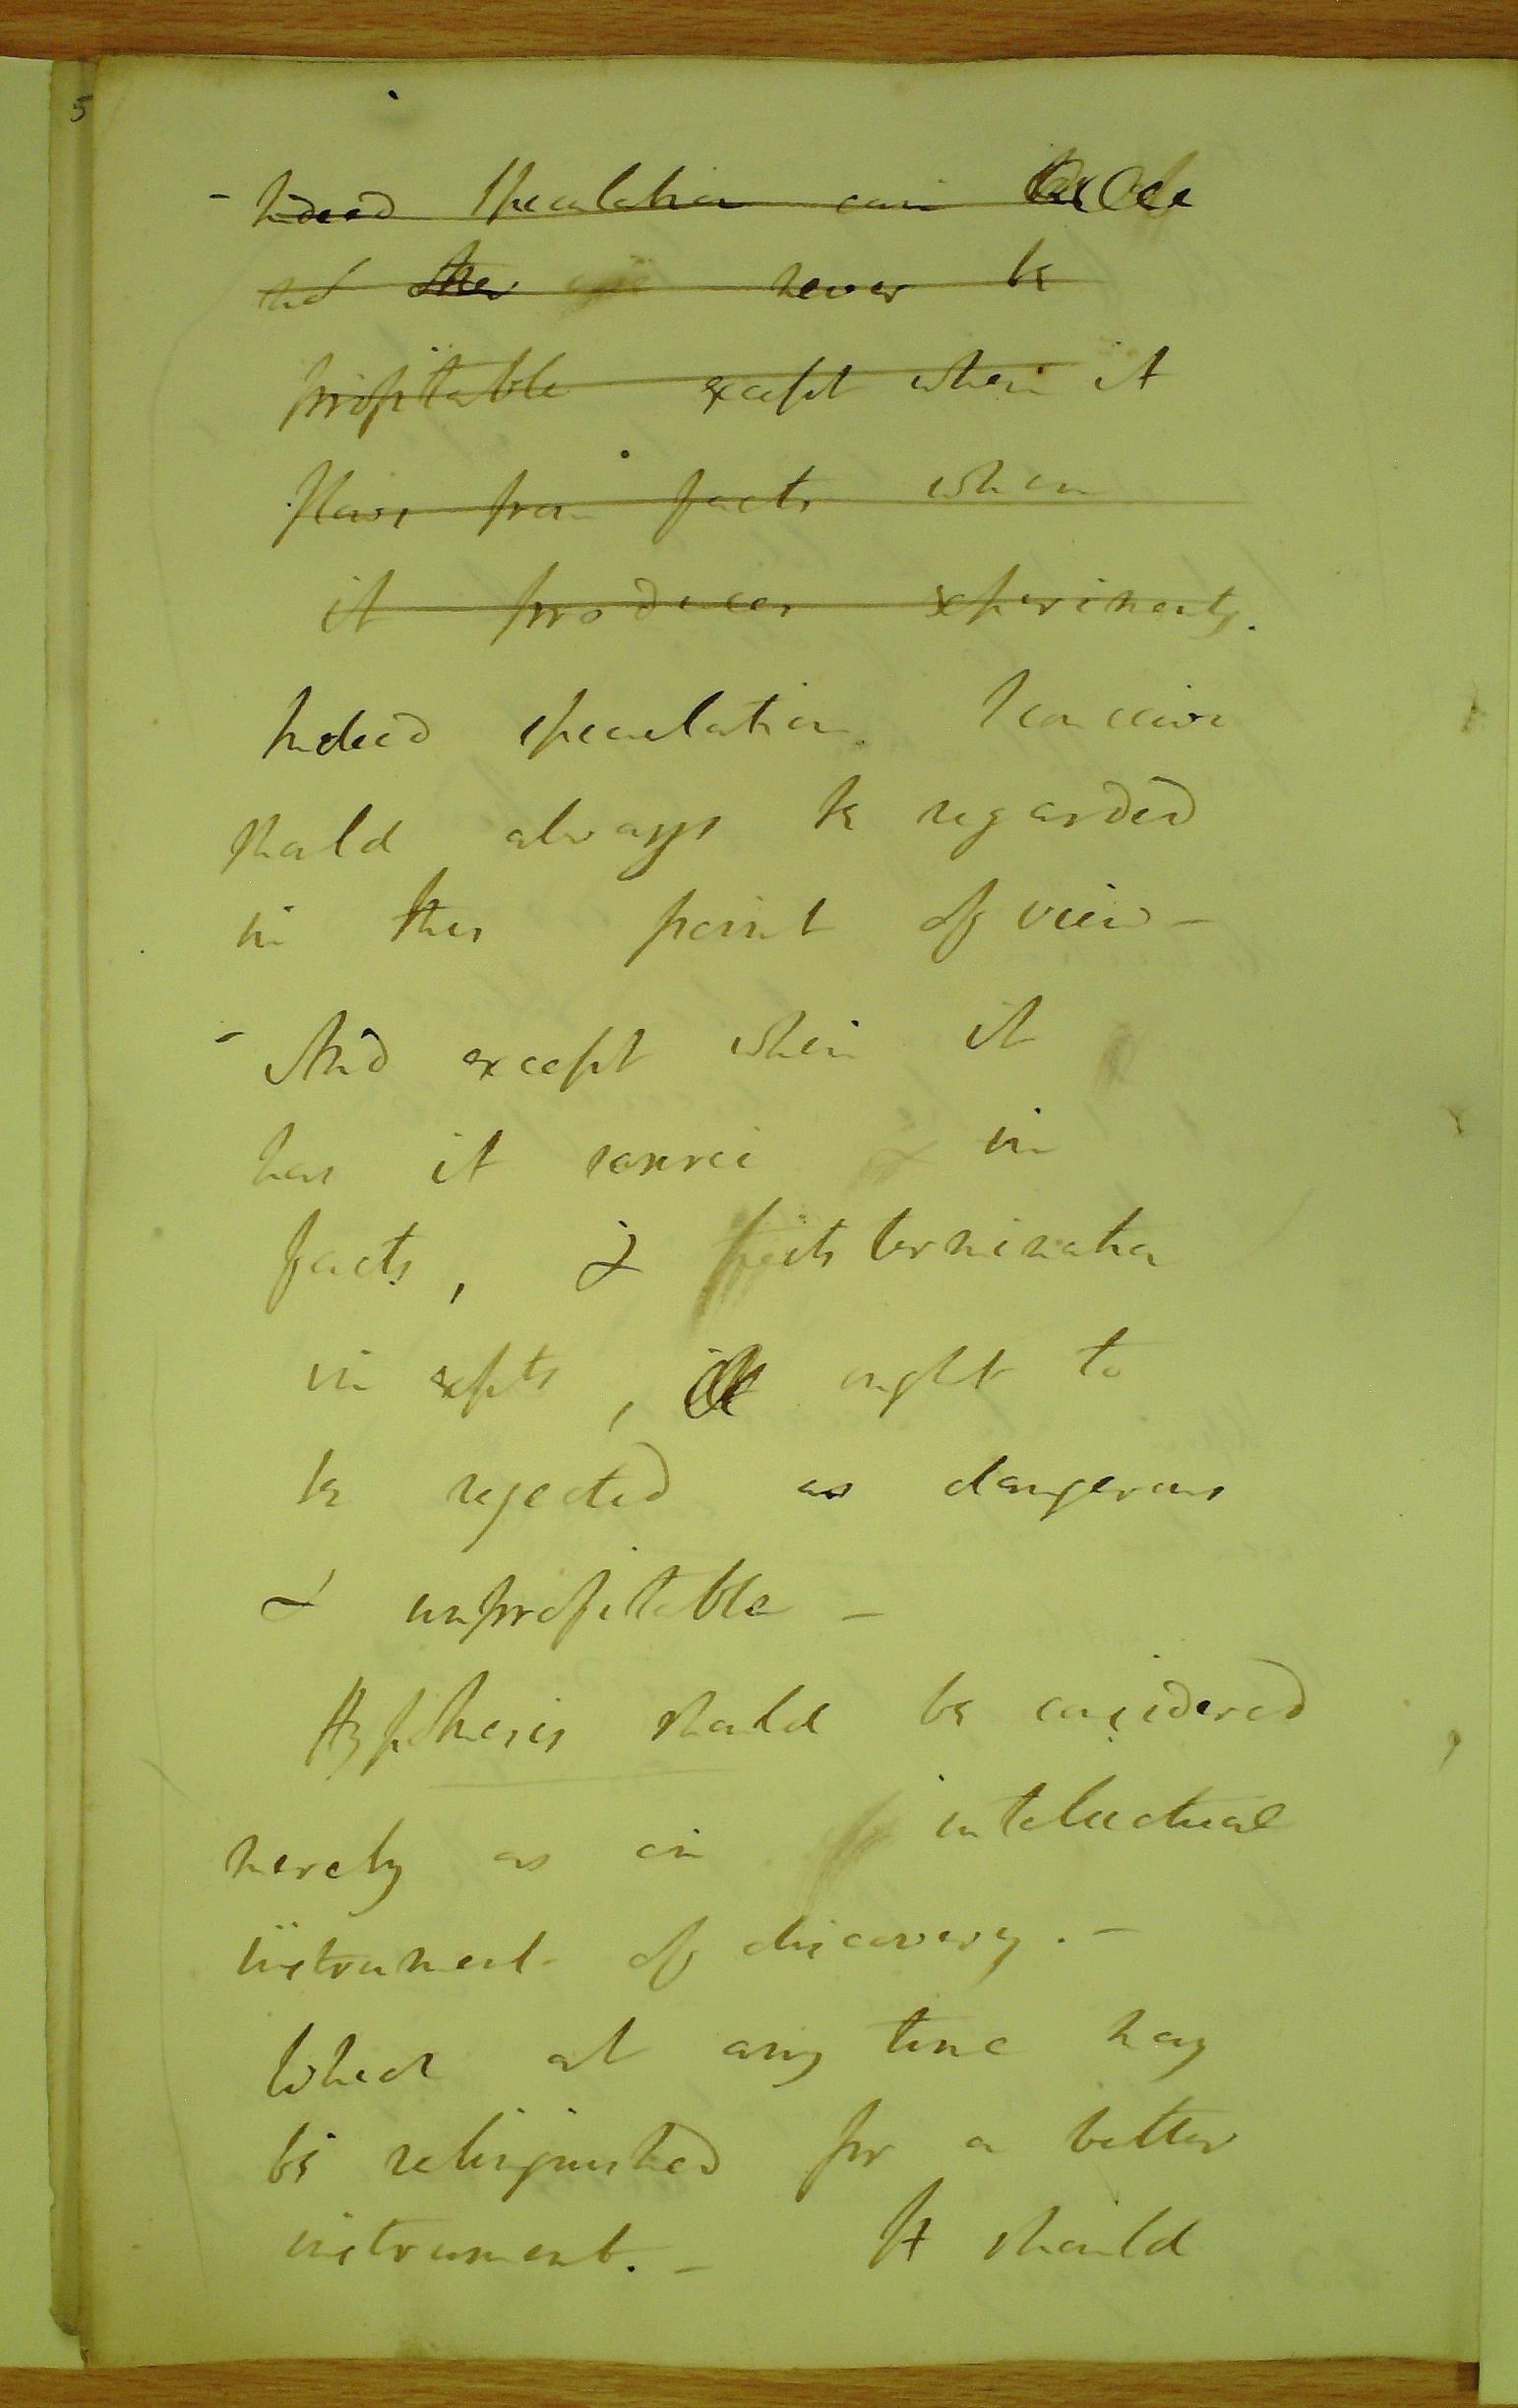 5
- Indeed Speculation can
never be
profitable except when it
flows from facts when
it produces experiments.
Indeed speculation I conceive
should always be regarded
in this point of view -
- And except when it
has it source & in
facts, & its termination
in expts, it ought to
be rejected as dangerous
& unprofitable -
Hypothesis should be considered
merely as an intellectual
instrument of discovery. -
Which at any time may
be relinquished for a better
instrument. - It should